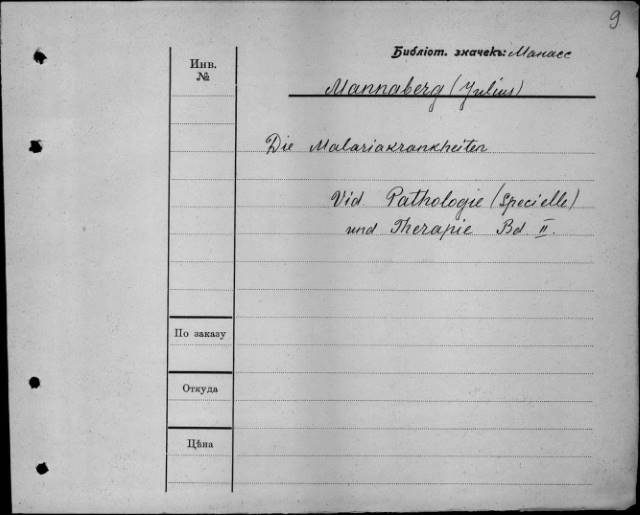 9
Библіот. значекъ: Манасс
Инв.
№
Mannaberg (Julius)
Die Malariakrankheiten
Vid Pathologie (Specielle)
und Therapie Bd II.
По заказу
Откуда
Цѣна